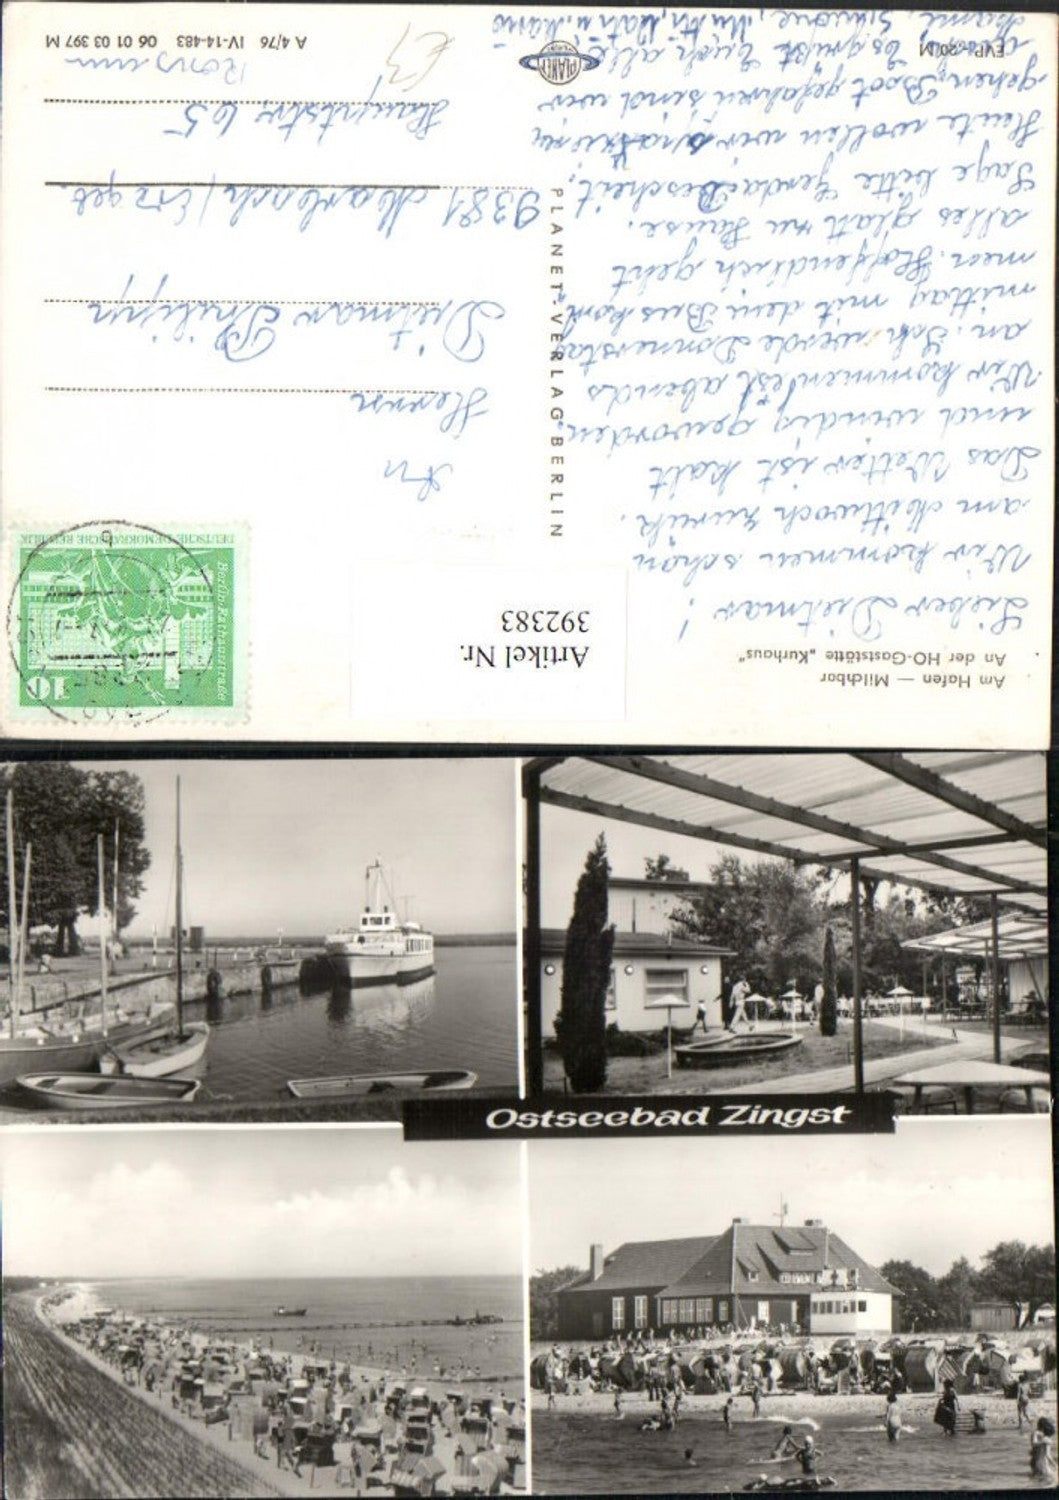 Am Hafen — Milchbar
An der HO-Gaststätte „Kurhaus"
Lieber Dietmar!
Wir kommen schon
am Mittwoch zurück.
Das Wetter ist kalt
und windig geworden.
Wir kommen erst abends
an. Ich werde Donnerstag
mittag mit dem Bus kom-
men. Hoffendlich geht
alles glatt zu Hause.
Sage bitte Gerda Bescheid,
Heute wollen wir spazieren
gehen, Boot gefahren sind wir
Es grüßt Euch alle
Simone,
EVP –,20 M
PLANET-VERLAG BERLIN
PLANET
BERLIN
Deutsche Demokratische Republik
Berlin, Rathausstraße
10
An
Herrn
Dietmar Philipp
9381 Marbach/Erzgeb.
Hauptstr 65
A 4/76 IV-14-483 06 01 03 397 M
Artikel Nr.
392383
Ostseebad Zingst